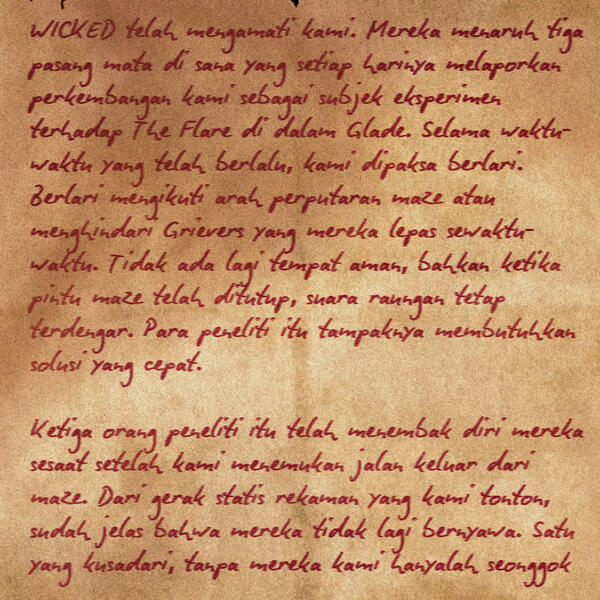 WICKED telah mengamati kami. Mereka menaruh tiga
pasang mata di sana yang setiap harinya melaporkan
perkembangan kami sebagai subjek eksperimen
terhadap The Flare di dalam Glade. Selama waktu-
waktu yang telah berlalu, kami dipaksa berlari.
Berlari mengikuti arah perputaran maze atau
menghindari Grievers yang mereka lepas sewaktu-
waktu. Tidak ada lagi tempat aman, bahkan ketika
pintu maze telah ditutup, suara raungan tetap
terdengar. Para peneliti itu tampaknya membutuhkan
solusi yang cepat.
Ketiga orang peneliti itu telah menembak diri mereka
sesaat setelah kami menemukan jalan keluar dari
maze. Dari gerak statis rekaman yang kami tonton,
sudah jelas bahwa mereka tidak lagi bernyawa. Satu
yang kusadari, tanpa mereka kami hanyalah seonggok